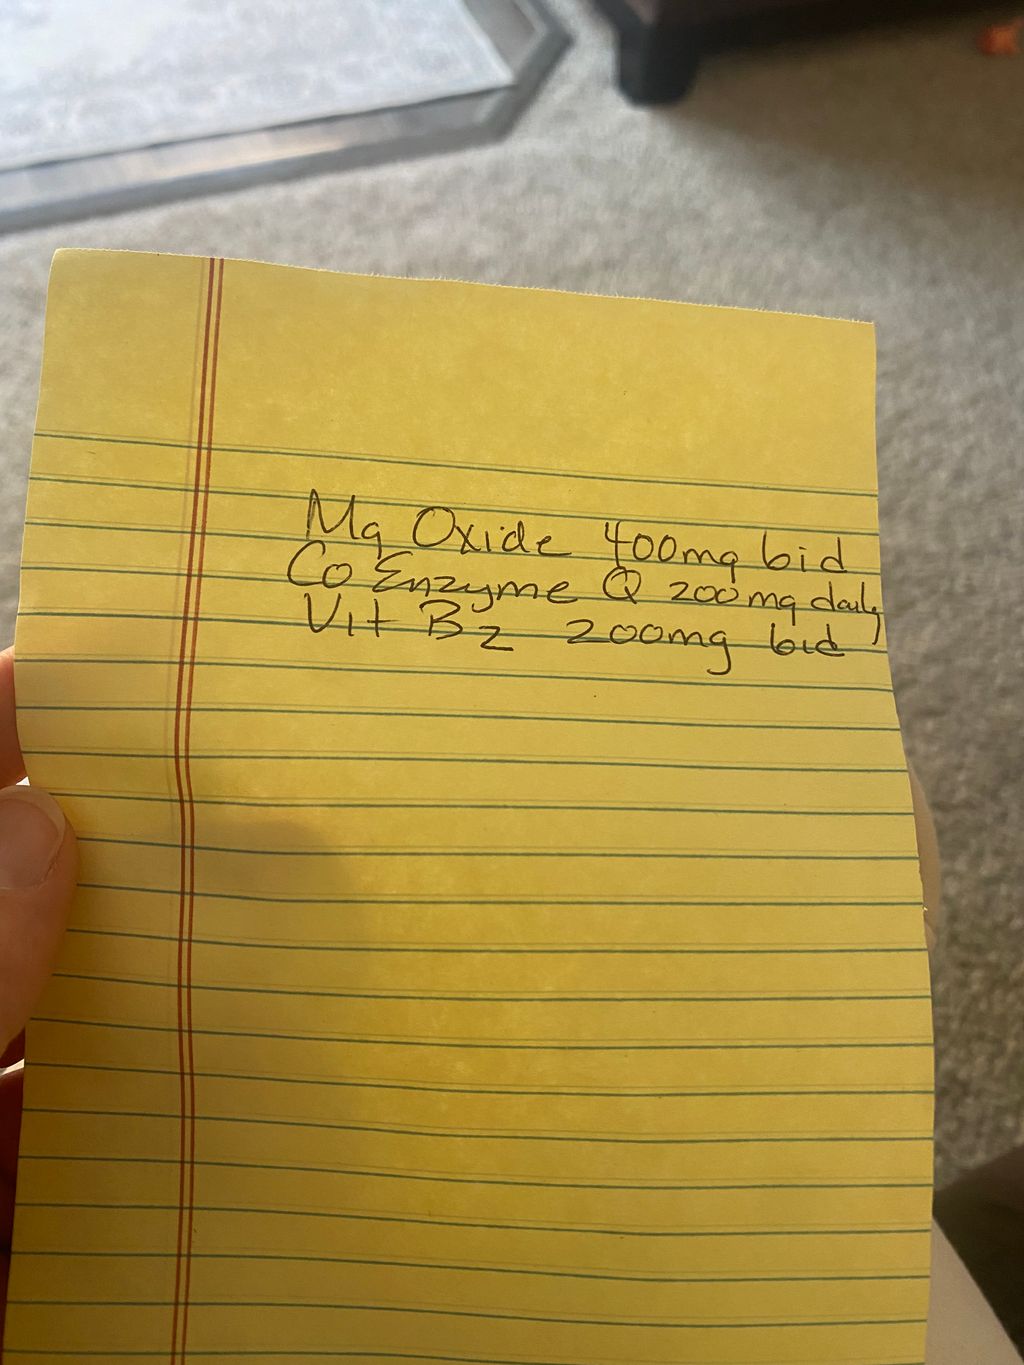 Mg Oxide 400mg bid
Co Enzyme Q 200mg daily
Vit B2 200mg bid